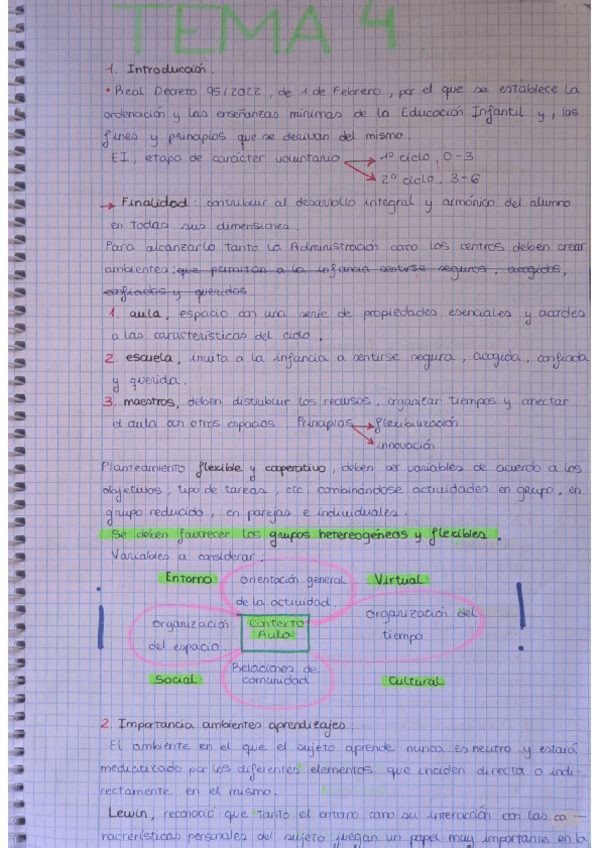 TEMA 4.
1. Introducción.
• Real Decreto 95/2022, de 1 de Febrero, por el que se establece la
ordenación y las enseñanzas mínimas de la Educación Infantil y, los
fines y principios que se derivan del mismo.
EI, etapa de carácter voluntario → 1º ciclo, 0-3
→ 2º ciclo, 3-6
→ Finalidad: contribuir al desarrollo integral y armónico del alumno
en todas sus dimensiones.
Para alcanzarlo tanto la Administración como los centros deben crear
ambientes: que permitan a la infancia sentirse seguros, acogidos,
confiados y queridos
1. aula, espacio con una serie de propiedades esenciales y acordes
a las características del ciclo.
2. escuela, invita a la infancia a sentirse segura, acogida, confiada
y querida.
3. maestros, deben distribuir los recursos, organizar tiempos y conectar
el aula con otros espacios. Principios → flexibilización
→ innovación
Planteamiento flexible y cooperativo, deben ser variables de acuerdo a los
objetivos, tipo de tareas, etc. combinándose actividades en grupo, en
grupo reducido, en parejas e individuales.
Se deben favorecer los grupos hetereogéneos y flexibles.
Variables a considerar:
Entorno orientación general Virtual
de la actividad.
organización Contexto organización del
del espacio Aula tiempo
Social Relaciones de Cultural
comunidad.
2. Importancia ambientes aprendizajes.
El ambiente en el que el sujeto aprende nunca es neutro y estará
mediatizado por los diferentes elementos que inciden directa o indi-
rectamente en el mismo.
Lewin, reconoció que tanto el entorno como su interacción con las ca-
racterísticas personales del sujeto juegan un papel muy importante en la